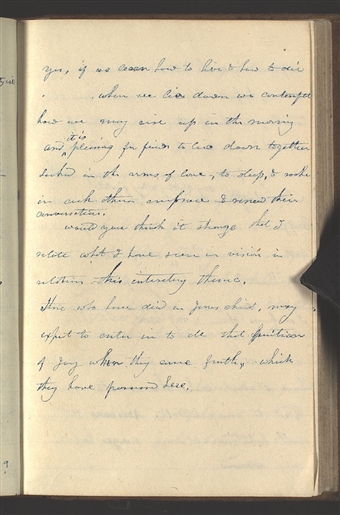 yes, if we learn how to live & how to die
when we lie down we contemplate
how we may rise up in the morning
and it is pleasing for friends to lie down together
locked in the arms of love, to sleep, & wake
in each others embrace & renew their
conversation.
would you think it strange that I
relate what I have seen in vision in
relation this interesting theme.
Those who have died in Jesus christ, may
expect to enter in to all that fruition
of Joy when they come forth, which
they have here.